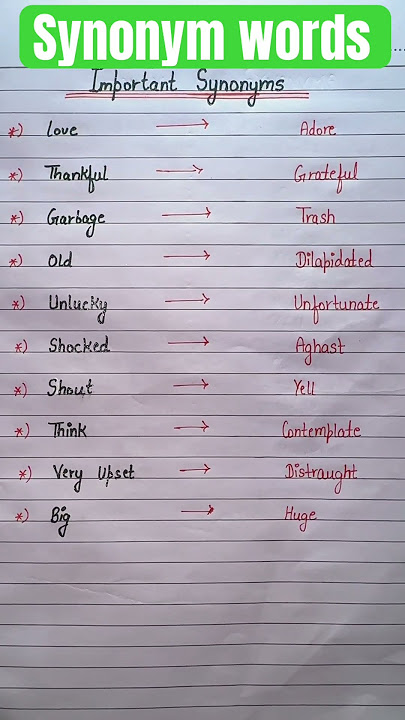 Synonym words
Important Synonyms
*) Love → Adore
*) Thankful → Grateful
*) Garbage → Trash
*) Old → Dilapidated
*) Unlucky → Unfortunate
*) Shocked → Aghast
*) Shout → Yell
*) Think → Contemplate
*) Very Upset → Distraught
*) Big → Huge